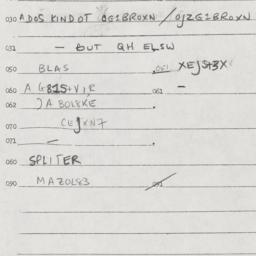 030 ADOS KINDOT OG1BROXN / OJZG1BROXN
031 — BUT QH ELSW
050 BLAS 051 XEJS+3X
060 A G815+VIR 061 —
062 JA BOLEKE .
070 CEJXN7
071 — .
080 SPLITER
090 MAZOL83 091